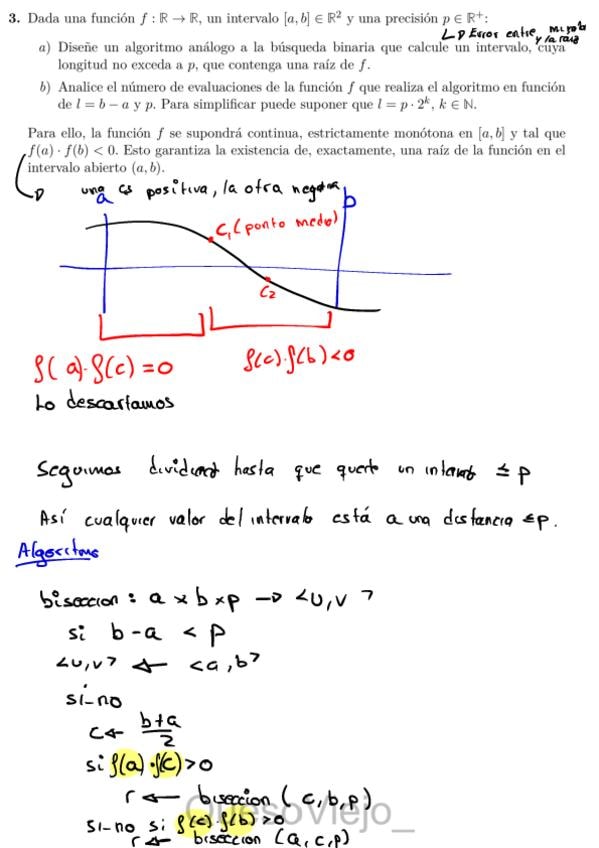 3. Dada una función f : ℝ → ℝ, un intervalo [a, b] ∈ ℝ² y una precisión p ∈ ℝ⁺:
↳ Error entre mi pto y la raiz
a) Diseñe un algoritmo análogo a la búsqueda binaria que calcule un intervalo, cuya
longitud no exceda a p, que contenga una raíz de f.
b) Analice el número de evaluaciones de la función f que realiza el algoritmo en función
de l = b − a y p. Para simplificar puede suponer que l = p · 2ᵏ, k ∈ ℕ.
Para ello, la función f se supondrá continua, estrictamente monótona en [a, b] y tal que
f(a) · f(b) < 0. Esto garantiza la existencia de, exactamente, una raíz de la función en el
intervalo abierto (a, b).
una es positiva, la otra negativa
a
b
C₁ (ponto medio)
C₂
f(a)·f(c) = 0
f(c)·f(b) < 0
Lo descartamos
Seguimos dividiendo hasta que quede un intervalo ≤ p
Así cualquier valor del intervalo está a una distancia ≤ p.
Algoritmo
biseccion : a x b x p → <u, v>
si b - a < p
<u, v> ← <a, b>
si-no
c ← b+a / 2
si f(a)·f(c) > 0
r ← biseccion (c, b, p)
si-no si f(c)·f(b) > 0
r ← biseccion (a, c, p)
QuesoViejo_